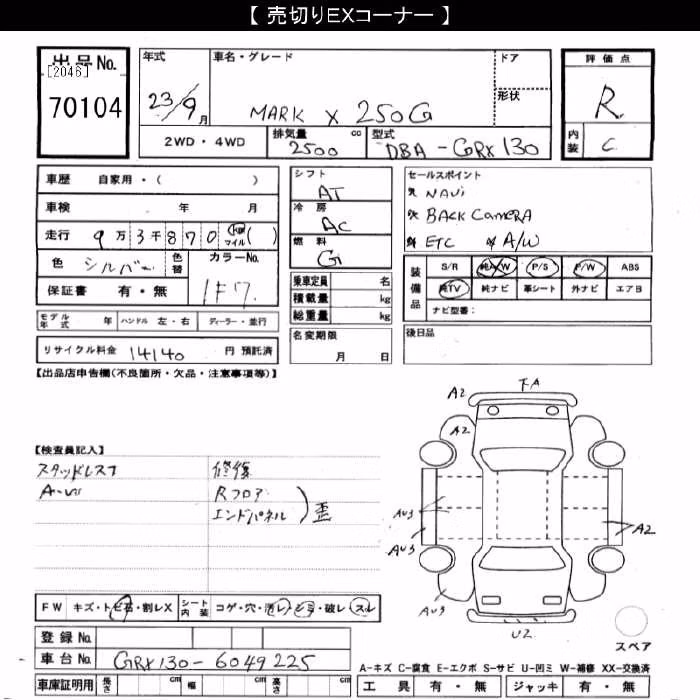 【 売切りEXコーナー 】
出品No.
[2046]
70104
年式
23/9月
車名・グレード
MARK X 250G
ドア
形状
評価点
R
内装 C
2WD・4WD
排気量 cc
2500
型式
DBA-GRX130
車歴 自家用・( )
車検 年 月
走行 9万3千870 km マイル ( )
色 シルバー
色替
カラーNo.
1F7.
保証書 有・無
シフト
AT
冷房
AC
燃料
G
乗車定員 名
積載量 kg
総重量 kg
セールスポイント
NAVi
BACK CAMERA
ETC A/W
装備品
S/R 純A/W P/S P/W ABS
純TV 純ナビ 革シート 外ナビ エアB
ナビ型番:
モデル年式 年 ハンドル 左・右 ディーラー・並行
リサイクル料金 14140 円 預託済
名変期限
月 日
後日品
【出品店申告欄(不良箇所・欠品・注意事項等)】
【検査員記入】
スタッドレス
修復
Rフロア
エンドパネル
歪
A2
FA
A2
AU3
AU3
A2
AU3
U2
スペア
FW キズ・トビ石・割レX
シート内装 コゲ・穴・汚レ・シミ・破レ・スレ
登録No.
車台No. GRX130-6049225
車庫証明用 長さ cm 幅 cm 高さ cm
A-キズ C-腐食 E-エクボ S-サビ U-凹ミ W-補修 XX-交換済
工具 有・無 ジャッキ 有・無